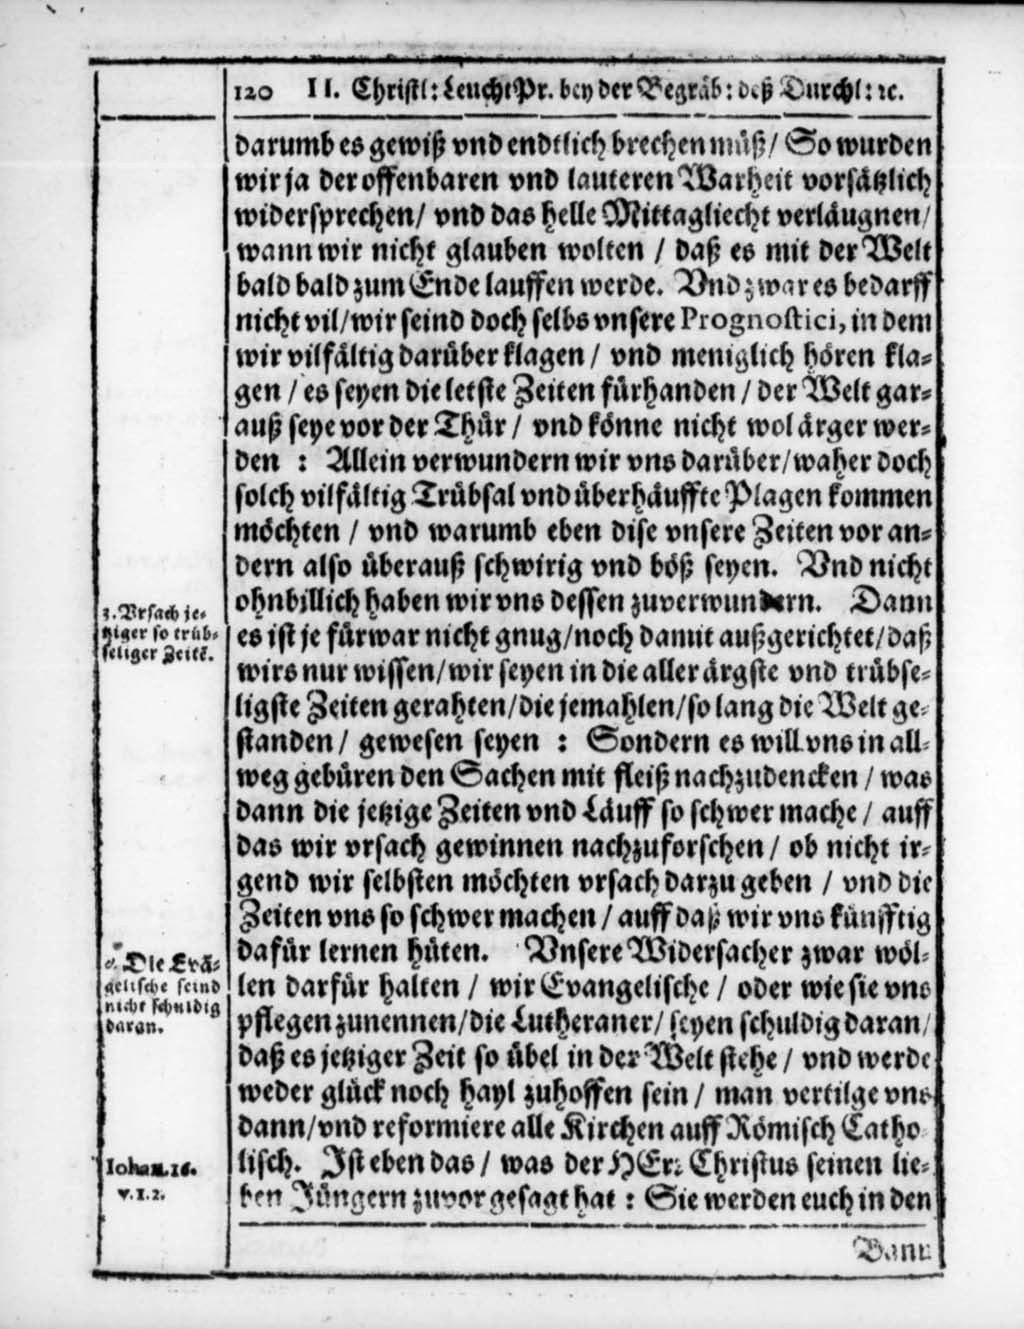 120 II. Christl: LeuchtPr. bey der Begräb: deß Durchl: ꝛc.
darumb es gewiß vnd endtlich brechen müß/ So wurden
wir ja der offenbaren vnd lauteren Warheit vorsätzlich
widersprechen/ vnd das helle Mittagliecht verläugnen/
wann wir nicht glauben wolten / daß es mit der Welt
bald bald zum Ende lauffen werde. Vnd zwar es bedarff
nicht vil/wir seind doch selbs vnsere Prognostici, in dem
wir vilfältig darüber klagen / vnd meniglich hören kla-
gen / es seyen die letste Zeiten fürhanden / der Welt gar-
auß seye vor der Thür / vnd könne nicht wol ärger wer-
den : Allein verwundern wir vns darüber/waher doch
solch vilfältig Trübsal vnd überhäuffte Plagen kommen
möchten / vnd warumb eben dise vnsere Zeiten vor an-
dern also überauß schwirig vnd böß seyen. Vnd nicht
ohnbillich haben wir vns dessen zuverwundern. Dann
es ist je fürwar nicht gnug/noch damit außgerichtet/daß
wirs nur wissen/wir seyen in die aller ärgste vnd trübse-
ligste Zeiten gerahten/die jemahlen/so lang die Welt ge-
standen / gewesen seyen : Sondern es will vns in all-
weg gebüren den Sachen mit fleiß nachzudencken / was
dann die jetzige Zeiten vnd Läuff so schwer mache / auff
das wir vrsach gewinnen nachzuforschen / ob nicht ir-
gend wir selbsten möchten vrsach darzu geben / vnd die
Zeiten vns so schwer machen / auff daß wir vns künfftig
dafür lernen hüten. Vnsere Widersacher zwar wöl-
len darfür halten / wir Evangelische / oder wie sie vns
pflegen zunennen/die Lutheraner/ seyen schuldig daran/
daß es jetziger Zeit so übel in der Welt stehe / vnd werde
weder glück noch hayl zuhoffen sein / man vertilge vns
dann/vnd reformiere alle Kirchen auff Römisch Catho-
lisch. Ist eben das / was der HErꝛ Christus seinen lie-
ben Jüngern zuvor gesagt hat : Sie werden euch in den
Bann
3. Vrsach je-
tziger so trüb-
seliger Zeitē.
Die Evā-
gelische seind
nicht schuldig
daran.
Iohan. 16.
v. 1. 2.